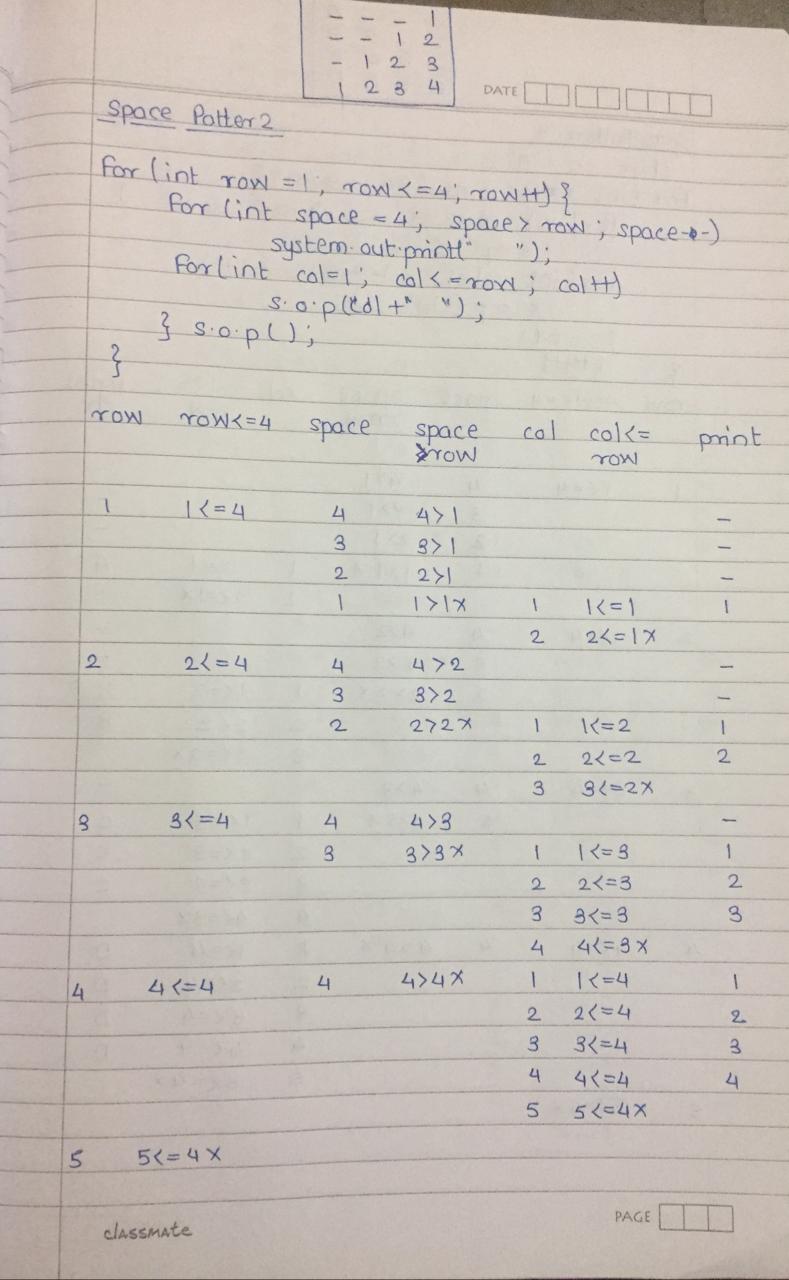 - - - 1
- - 1 2
- 1 2 3
1 2 3 4
DATE
Space Patter 2
for (int row = 1; row <= 4; row++) {
for (int space = 4; space > row; space--)
system.out.print(" ");
for (int col=1; col <= row; col++)
s.o.p(col + " ");
} s.o.p();
}
row row<=4 space space >row col col<= row print
1 1<=4 4 4>1 -
3 3>1 -
2 2>1 -
1 1>1x 1 1<=1 1
2 2<=1x
2 2<=4 4 4>2 -
3 3>2 -
2 2>2x 1 1<=2 1
2 2<=2 2
3 3<=2x
3 3<=4 4 4>3 -
3 3>3x 1 1<=3 1
2 2<=3 2
3 3<=3 3
4 4<=3x
4 4<=4 4 4>4x 1 1<=4 1
2 2<=4 2
3 3<=4 3
4 4<=4 4
5 5<=4x
5 5<=4x
classmate
PAGE